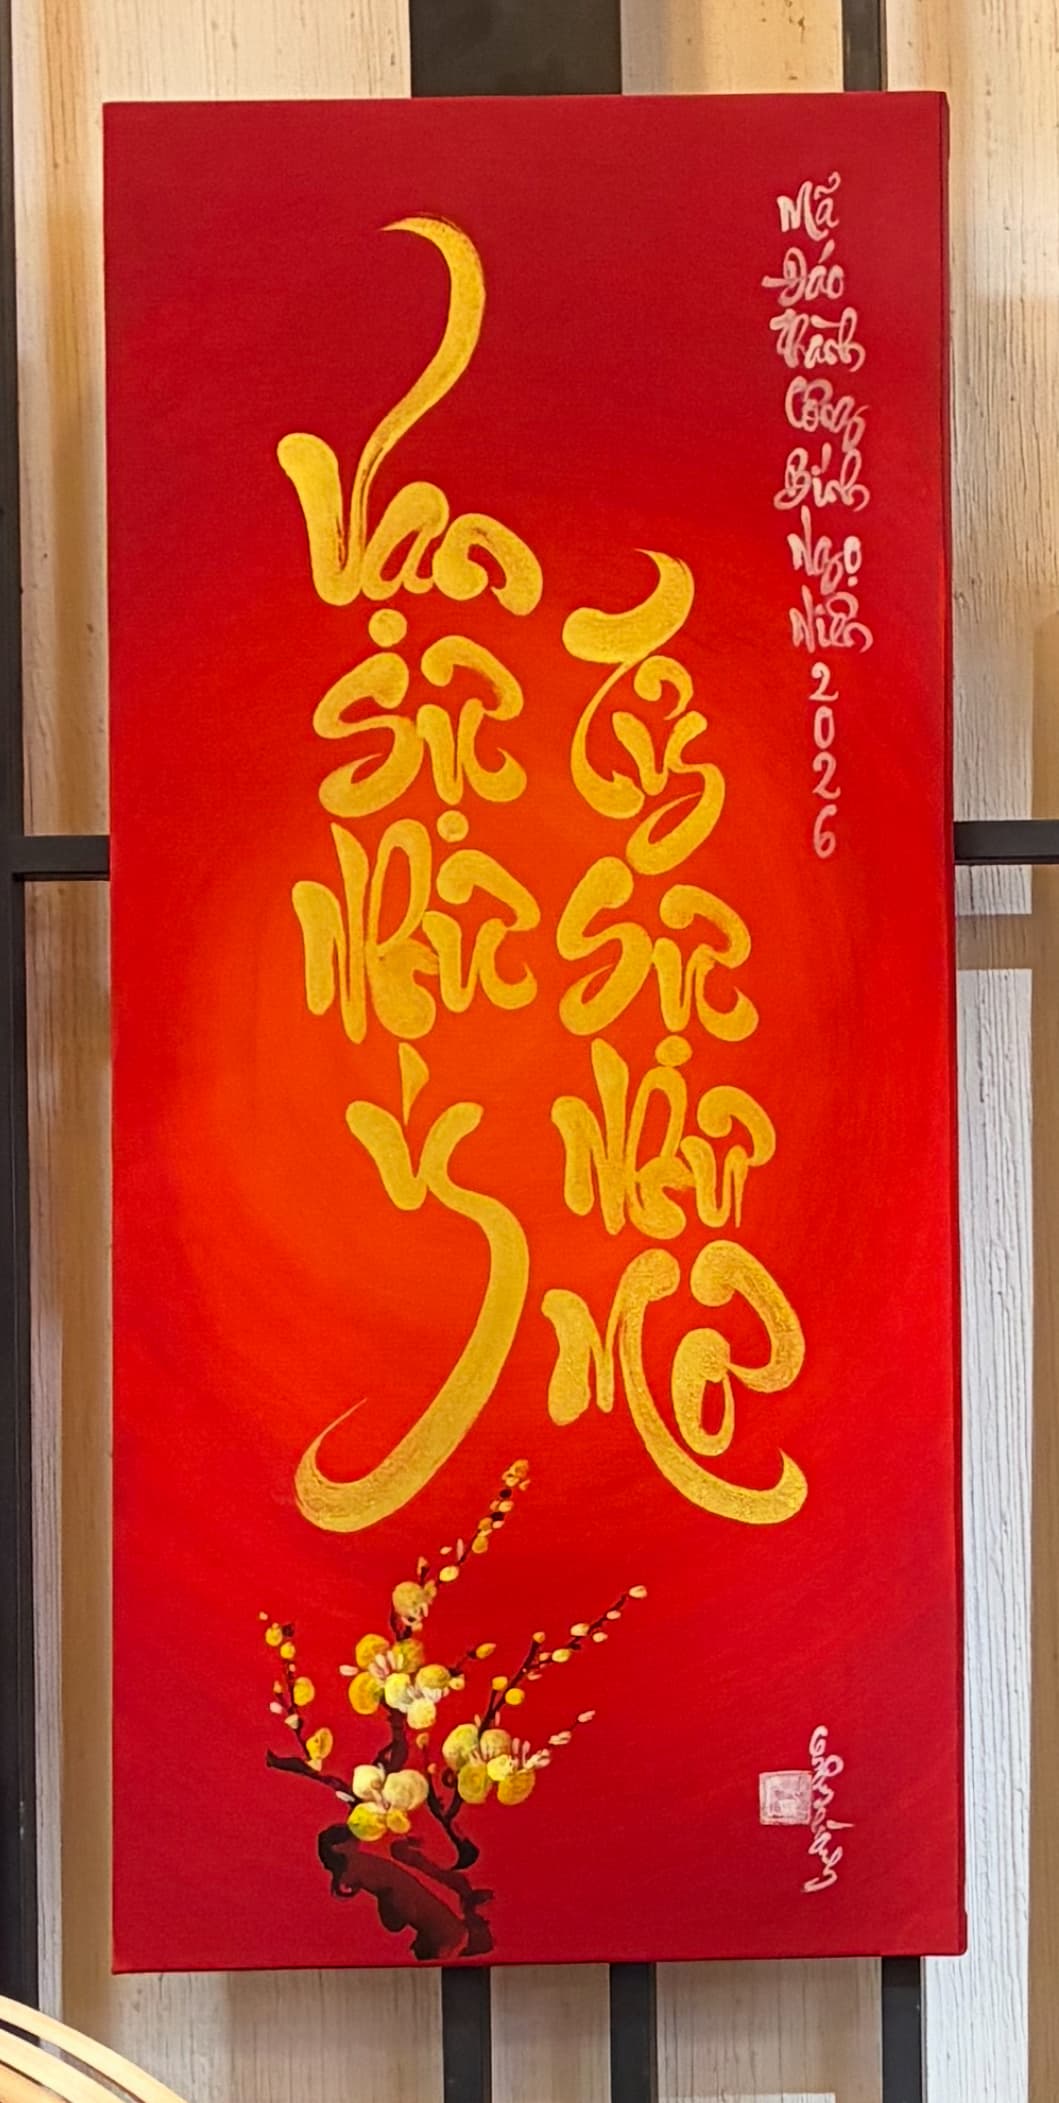 Vạn
Sự
Như
Ý
Tùy
Sự
Như
Mơ
Mã
Đáo
Thành
Công
Bính
Ngọ
Niên
2
0
2
6